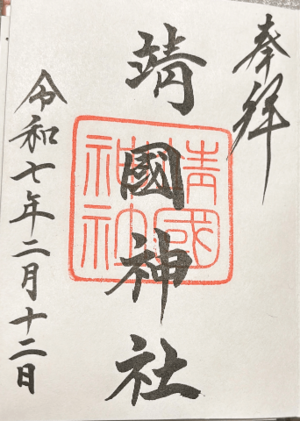 奉拝
靖國神社
靖國
神社
令和七年二月十二日